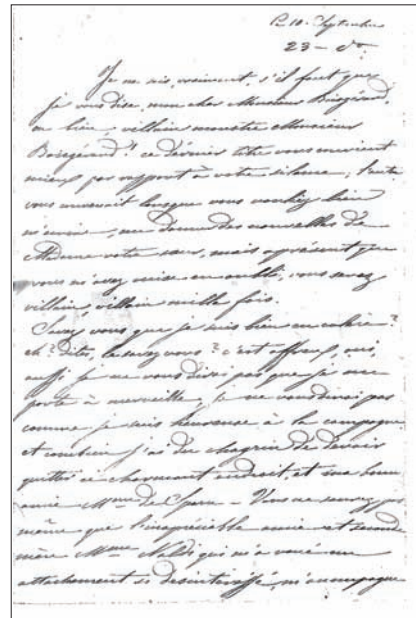 Ce 10. Septembre
23 - do
Je ne sais, vraiment, s'il faut que
je vous dise, mon cher Monsieur Boisgérand,
ou bien, villain monstre Monsieur
Boisgérand! ce dernier titre vous convient
mieux par rapport à votre silence; l'autre
vous convenait lorsque vous vouliez bien
m'écrire, me donner des nouvelles de
Madame votre sœur, mais aprésent que
vous m'avez mise en oubli, vous serez
villain, villain mille fois.
Savez vous que je suis bien en colère?
eh? dites, le savez vous? c'est affreux, oui,
aussi je ne vous dirai pas que je me
porte à merveille, je ne vous dirai pas
comme je suis heureuse à la campagne
et combien j'ai du chagrin de devoir
quitter ce charmant endroit, et ma bonne
amie Mme de Sparre - Vous ne saurez pas
même que l'inapréciable amie et seconde
mère Mme Naldi qui m'a voué un
attachement si desinteressé, m'accompagne